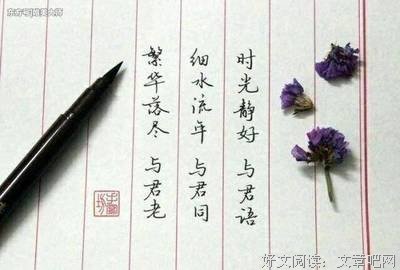 时光静好 与君语
细水流年 与君同
繁华落尽 与君老
好文阅读：文章吧网